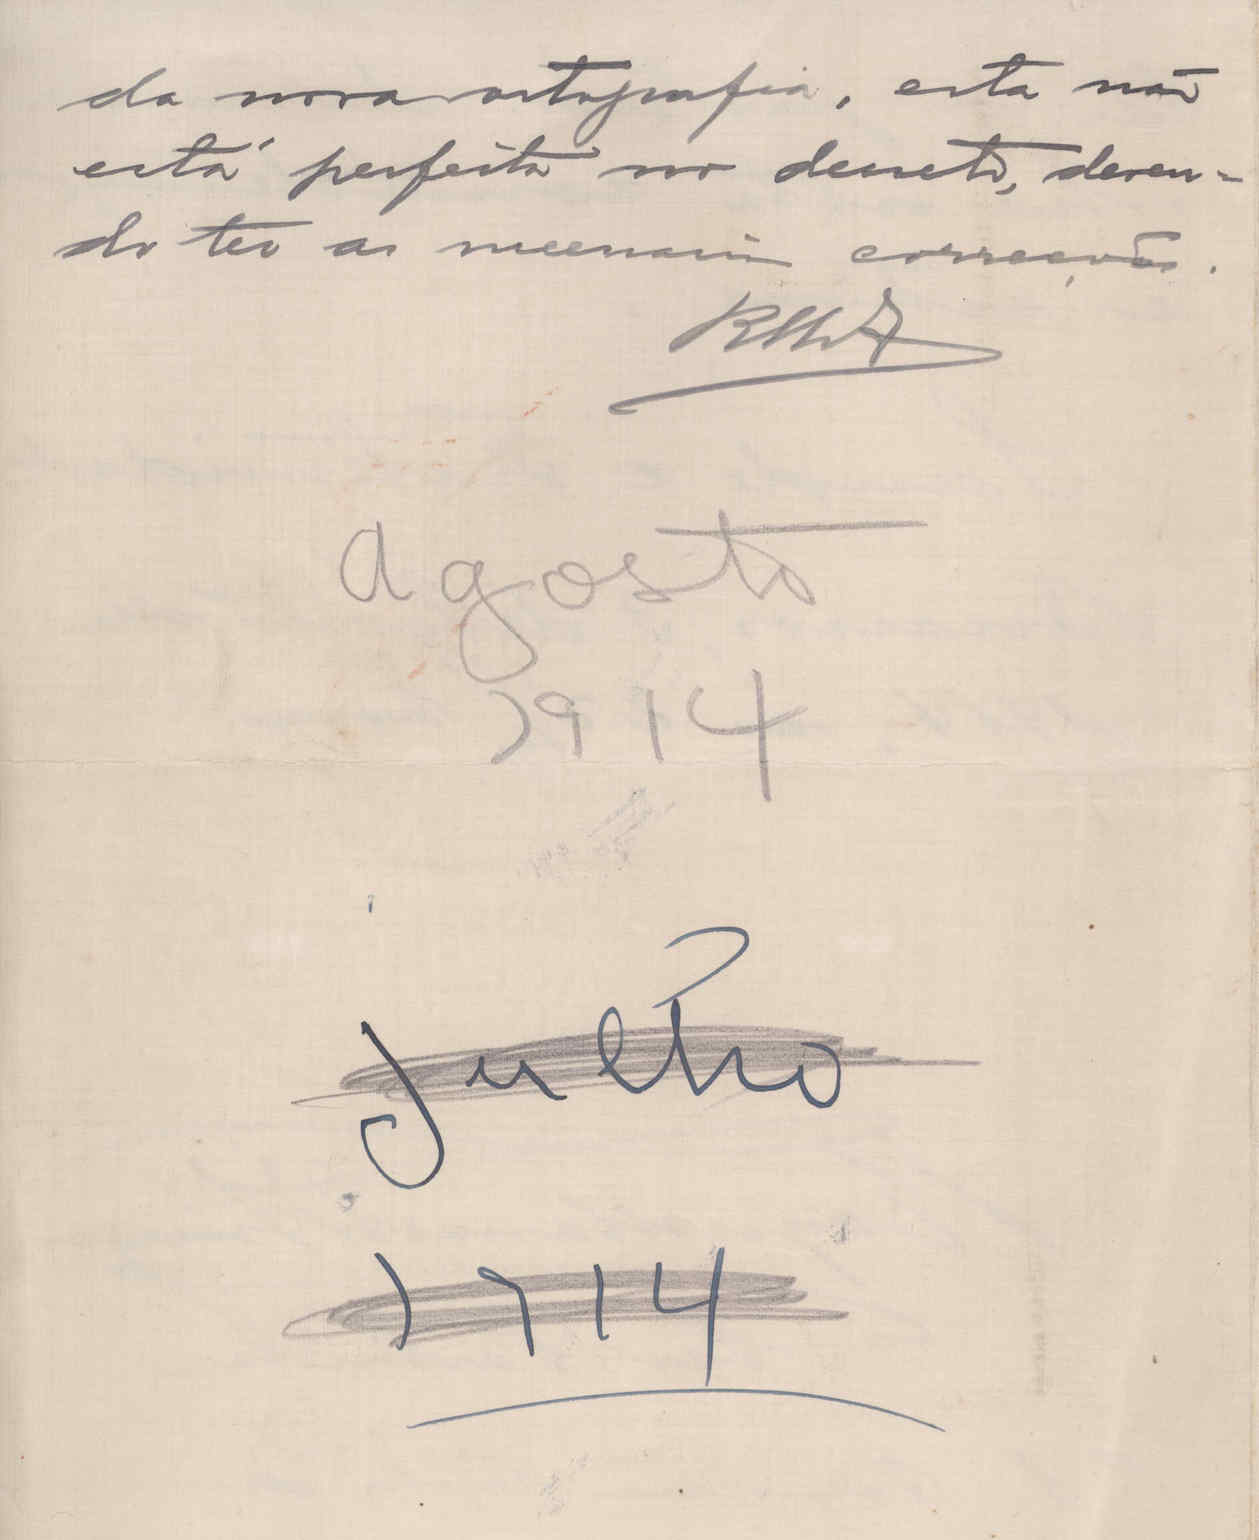 da nova ortografia, esta não
está perfeita no decreto, deven-
do ter as necessarias correcções.
Agosto
1914
Julho
1914